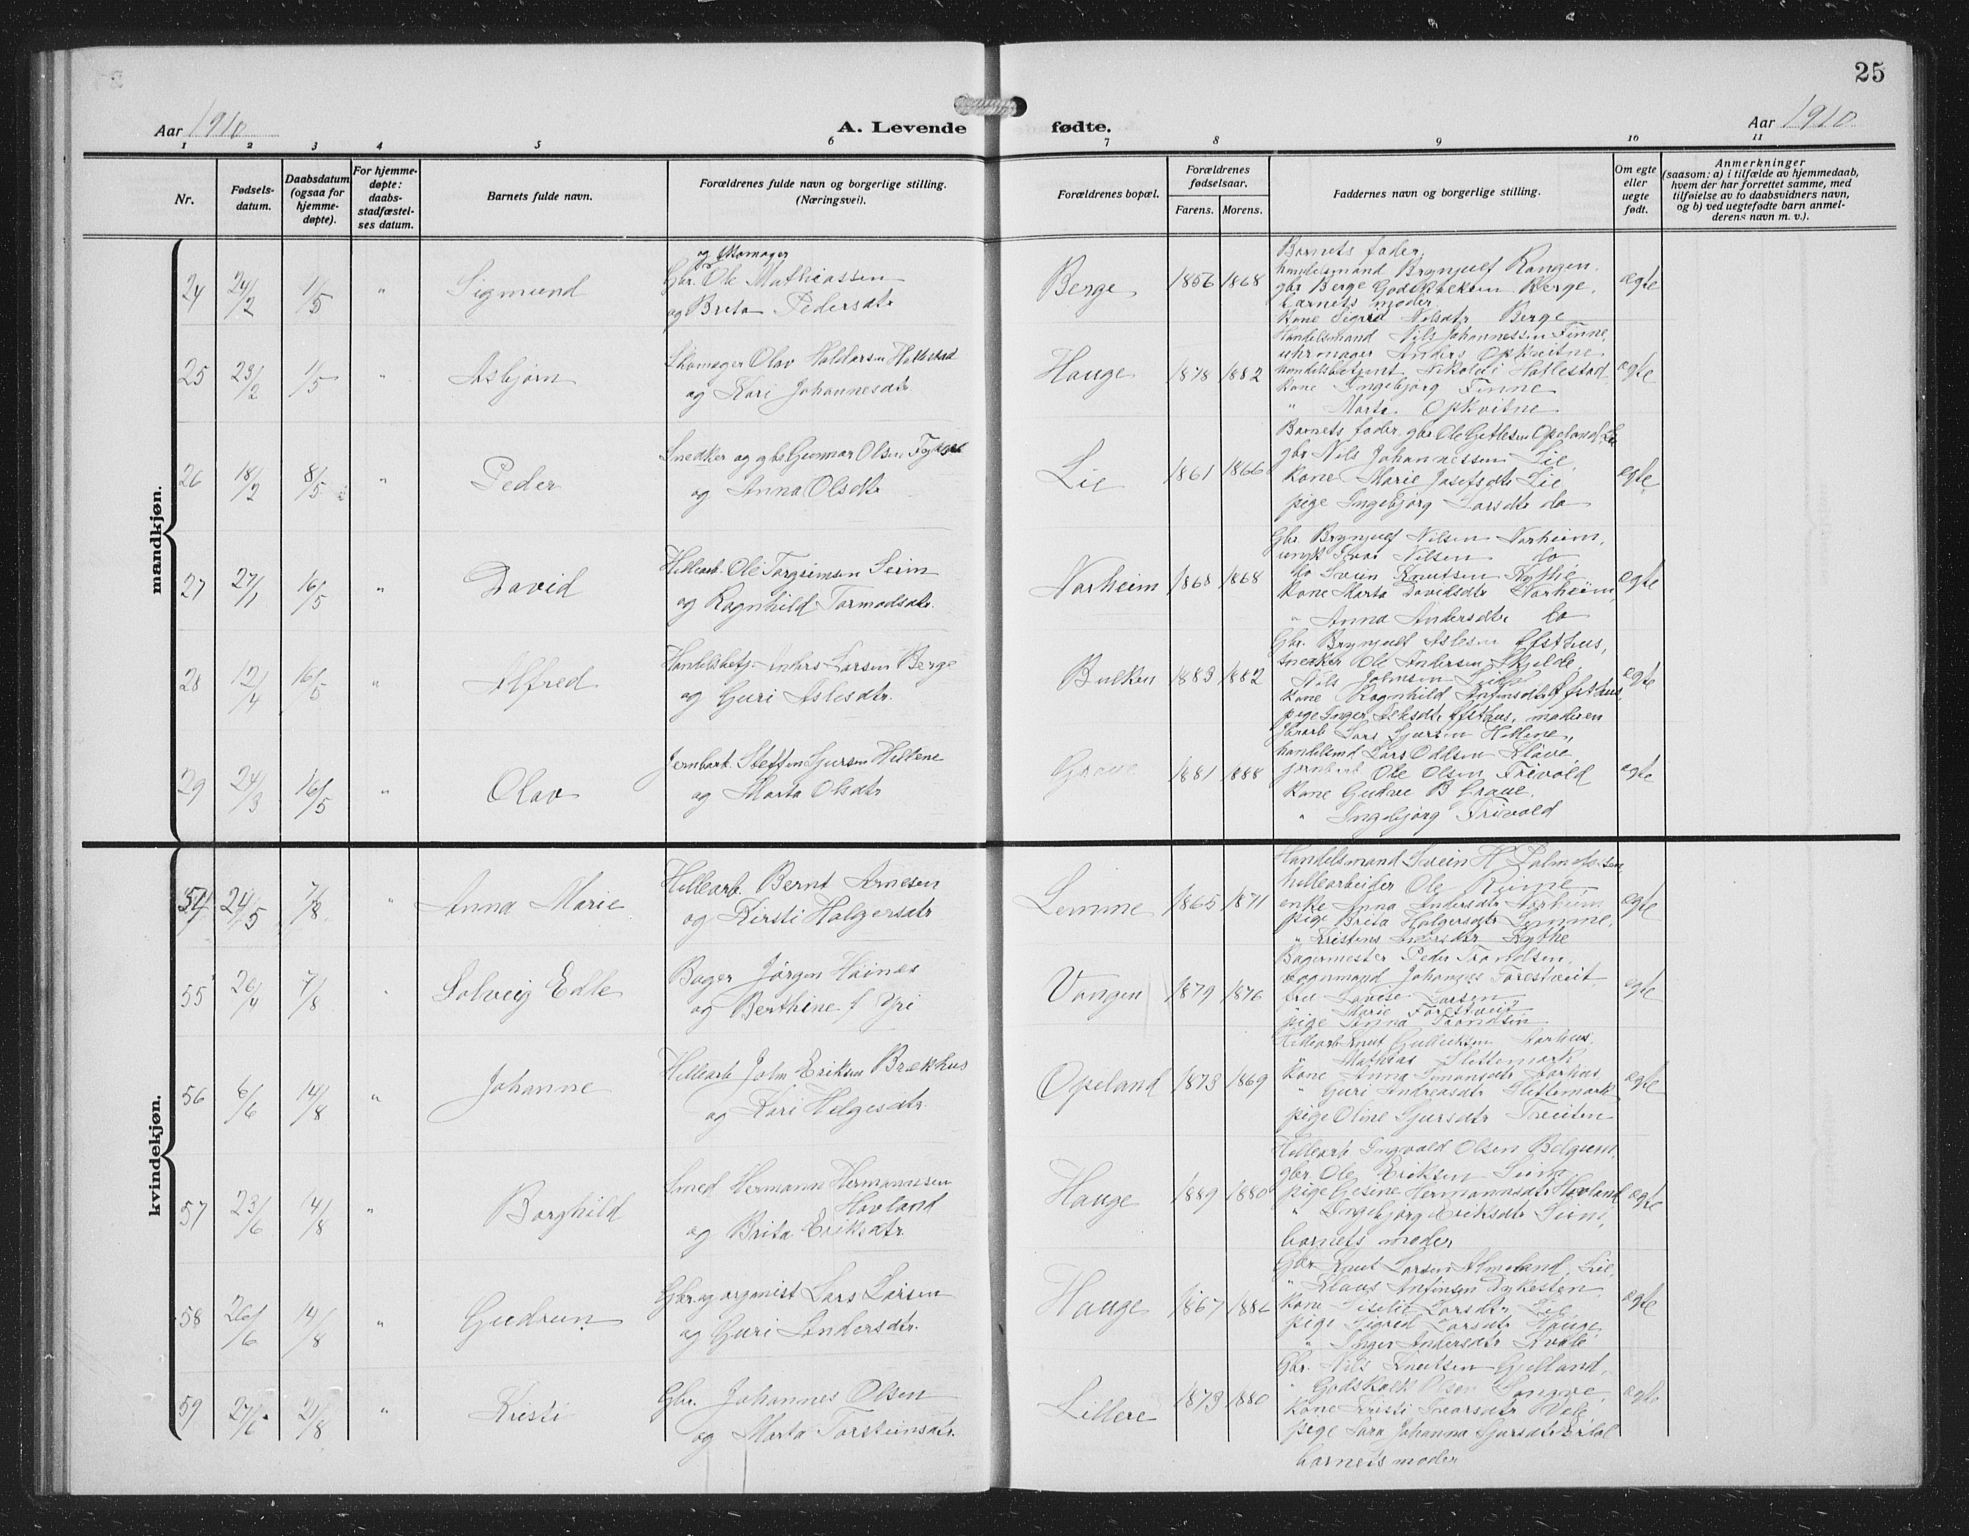 25
Aar 1910
A. Levende fødte.
Aar 1910
1 2 3 4 5 6 7 8 9 10 11
Nr.
Fødselsdatum.
Daabsdatum (ogsaa for hjemmedøpte).
For hjemmedøpte: daabsstadfæstelses datum.
Barnets fulde navn.
Forældrenes fulde navn og borgerlige stilling. (Næringsvei).
Forældrenes bopæl.
Forældrenes fødselsaar.
Farens. Morens.
Faddernes navn og borgerlige stilling.
Om egte eller uegte født.
Anmerkninger
(saasom: a) i tilfælde av hjemmedaab, hvem der har forrettet samme, med tilføielse av to daabsvidners navn, og b) ved uegtefødte barn anmelderens navn m. v.).
mandkjøn.
24 24/2 1/5 " Sigmund
og Skomager
Gbr. Ole Mathiassen
og Brita Pedersdtr
Berge 1856 1868
Barnets fader,
handelsmand Brynjulf Rongen,
gbr Berge Godskalksen Berge,
barnets moder,
kone Sigrid Nilsdtr Berge
egte
25 23/2 1/5 " Asbjørn
Skomager Olav Haldorsen Hallestad
og Kari Johannesdtr
Hauge 1878 1882
Handelsmand Nils Johannessen Finne,
uhrmager Anders Opkvitne
handelsbetjent Nikolai Hallestad
kone Ingebjørg Finne
" Marta Opkvitne
egte
26 18/2 8/5 " Peder
Snedker og gbr Gunnar Olsen
og Anna Olsdtr
Lie 1861 1866
Barnets fader, gbr Ole Gitlesen Opeland
gbr Nils Johannessen Lie,
kone Marie Josefsdtr Lie
pige Ingebjørg Larsdtr do
egte
27 27/1 16/5 " David
Hellearb. Ole Torgrimsen Seim
og Ragnhild Tormodsdtr.
Norheim 1868 1868
Gbr. Brynjulf Nilsen Norheim,
ungk Ivar Nilsen do
do Svein Knutsen Kythe
kone Marta Davidsdtr Norheim,
" Anna Andersdtr do
egte
28 12/4 16/5 " Alfred
Handelsbetj. Anders Larsen Berge
og Guri Aslesdtr.
Bulken 1883 1882
Gbr. Brynjulf Aslesen Afsthus,
snedker Ole Andersen Skjelde,
Nils Johnsen
kone Ragnhild
pige Inger Aslesdtr Afsthus, moderen
egte
29 24/3 16/5 " Olav
Jernbarb. Steffen Sjursen Hellene
og Marta Olsdtr
Grove 1881 1888
Lars Sjursen Hellene,
handelsmd Lars Oddsen Kløve,
Ole Olsen Trivold
kone Gudve B Grove,
" Ingebjørg Trivold
egte
kvindekjøn.
54 24/5 7/8 " Anna Marie
Hellearb. Bernt Arnesen
og Kirsti Holgersdtr
Lemme 1865 1871
Handelsmand Svein H Palmesen
hellearbeider Ole Rime
enke Anna Andersdtr Norheim
pige Brita Holgersdtr Lemme,
" Kristens Andersdtr Kythe
egte
55 26/4 7/8 " Solveig Edle
Bager Jørgen Høines
og Berthine f Yri
Vangen 1879 1876
Bagermester Peder Trondsen,
vognmand Johannes Forestveit,
fru Lovise Larsen,
" Marie Forestveit,
pige Anna Trondsen
egte
56 6/6 14/8 " Johanne
Hellearb John Eriksen Brækhus
og Kari Helgesdtr.
Opeland 1873 1869
Hellearb Knut Gulleiksen Aarhus,
" Mathias Slettemark
kone Anna Simonsdtr Aarhus
" Guri Andreasdtr Slettemark
pige Oline Sjursdtr Tveiten
egte
57 23/6 14/8 " Borghild
Smed Hermann Hermannsen
Hovland
og Brita Eriksdtr.
Hauge 1889 1880
Hellearb Ingvald Olsen Bolgum,
gbr. Ole Eriksen Seim
pige Gesine Hermannsdtr Hovland
" Ingebjørg Eriksdtr Seim,
barnets moder
egte
58 26/6 14/8 " Gudrun
Gbr. og organist Lars Larsen
og Guri Andersdtr.
Hauge 1867 1886
Gbr Knut Larsen Almeland, Lie,
" Klaus Anfinsen Dykesten
kone Siselie Larsdtr Lie
pige Sigrid Larsdtr Hauge,
" Inger Andersdtr Kvale
egte
59 27/6 21/8 " Kristi
Gbr. Johannes Olsen
og Marta Torsteinsdtr.
Lillere 1873 1880
Gbr. Nils Knutsen Gjelland,
" Godskalk Olsen Songve,
kone Kristi Ivarsdtr Vele
pige Sara Johanna Sjursdtr
barnets moder
egte